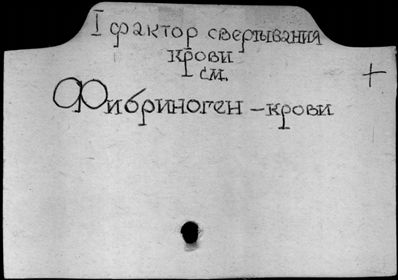 I фактор свертывания
крови
см.
+
Фибриноген – крови